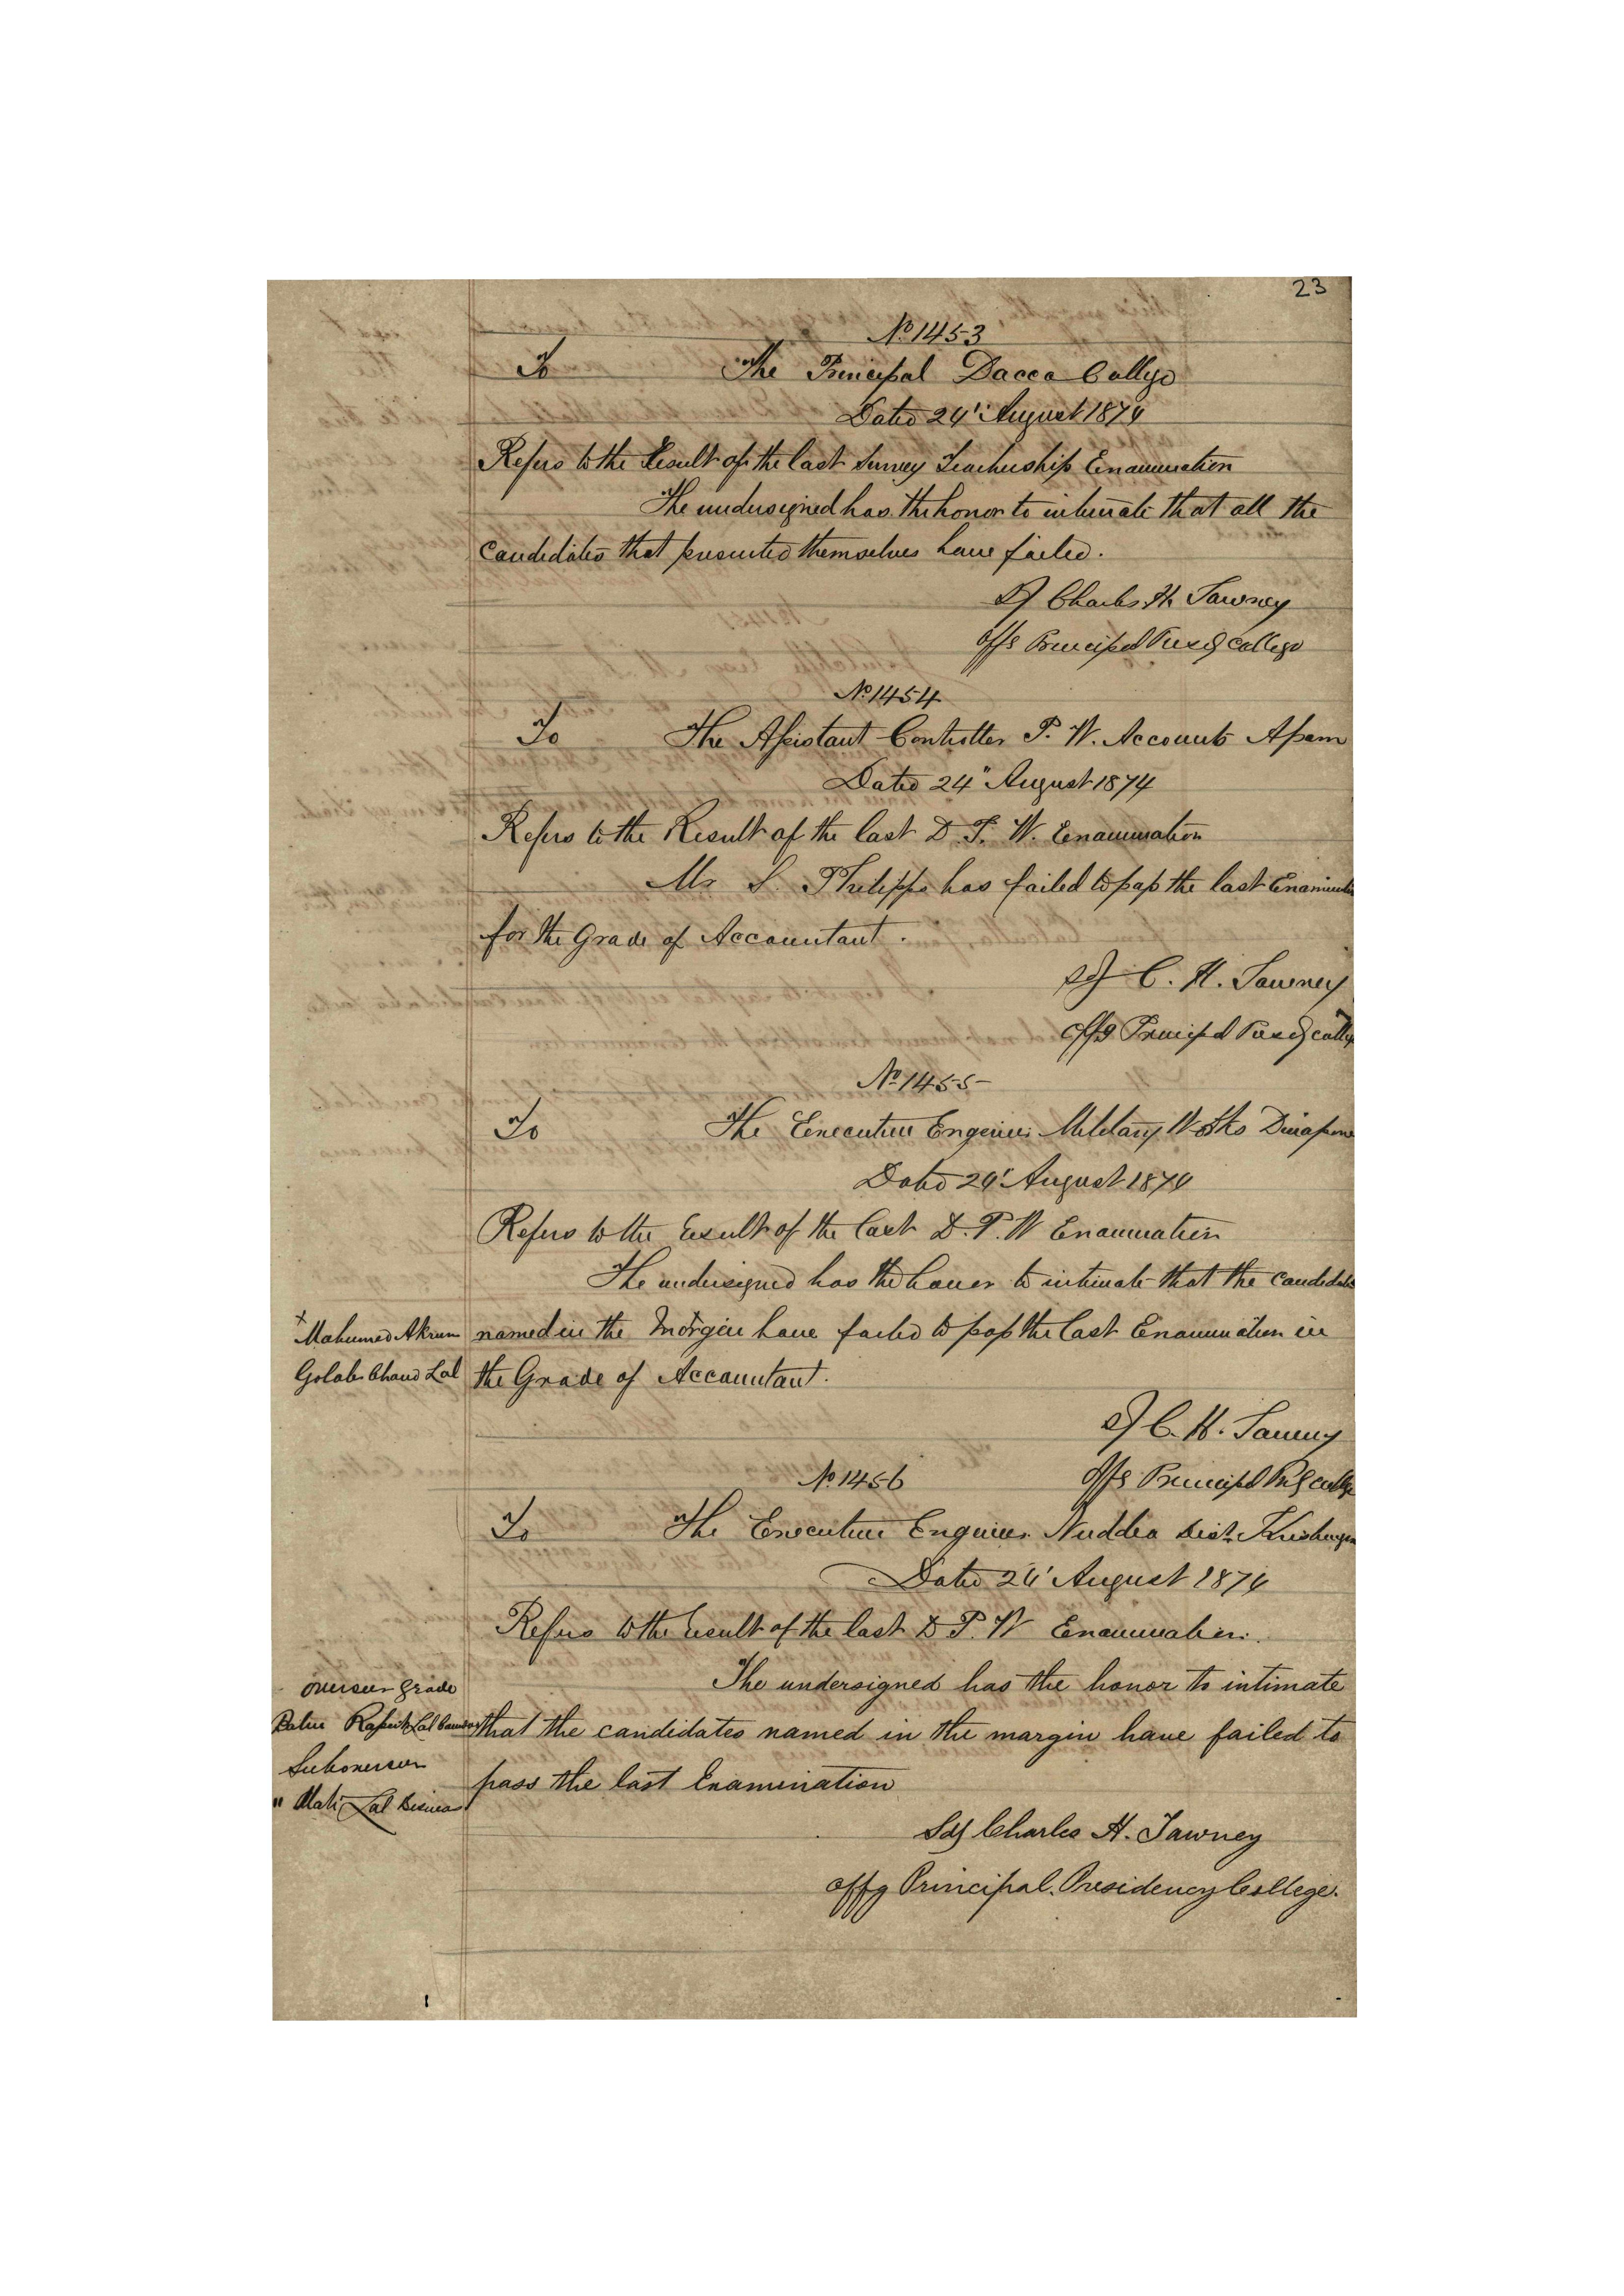 23
No 1453
To The Principal Dacca College
Dated 24' August 1874
Refers to the Result of the last Survey Teachership Examination
The undersigned has the honor to intimate that all the
candidates that presented themselves have failed.
Sd Charles H. Tawney
Offg Principal Presdy College
No 1454
To The Assistant Controller P. W. Accounts Assam
Dated 24" August 1874
Refers to the Result of the last D. P. W. Examination
Mr S. Philipps has failed to pass the last Examination
for the Grade of Accountant.
Sd C. H. Tawney
Offg Principal Presdy College
No 1455
To The Executive Engineer Military Works Dinapore
Dated 24' August 1874
Refers to the result of the last D. P. W Examination
The undersigned has the honor to intimate that the candidates
+ Mahumed Akrum named in the Margin have failed to pass the last Examination in
Golab Chand Lal the Grade of Accountant.
Sd C. H. Tawney
No 1456 Offg Principal College
To The Executive Engineer Nuddea Dist.
Dated 24' August 1874
Refers to the result of the last D. P. W Examination.
overseer grade The undersigned has the honor to intimate
Lal that the candidates named in the margin have failed to
Suboverseer pass the last Examination
" Mati Lal Biswas
Sd/ Charles H. Tawney
offg Principal. Presidency College.